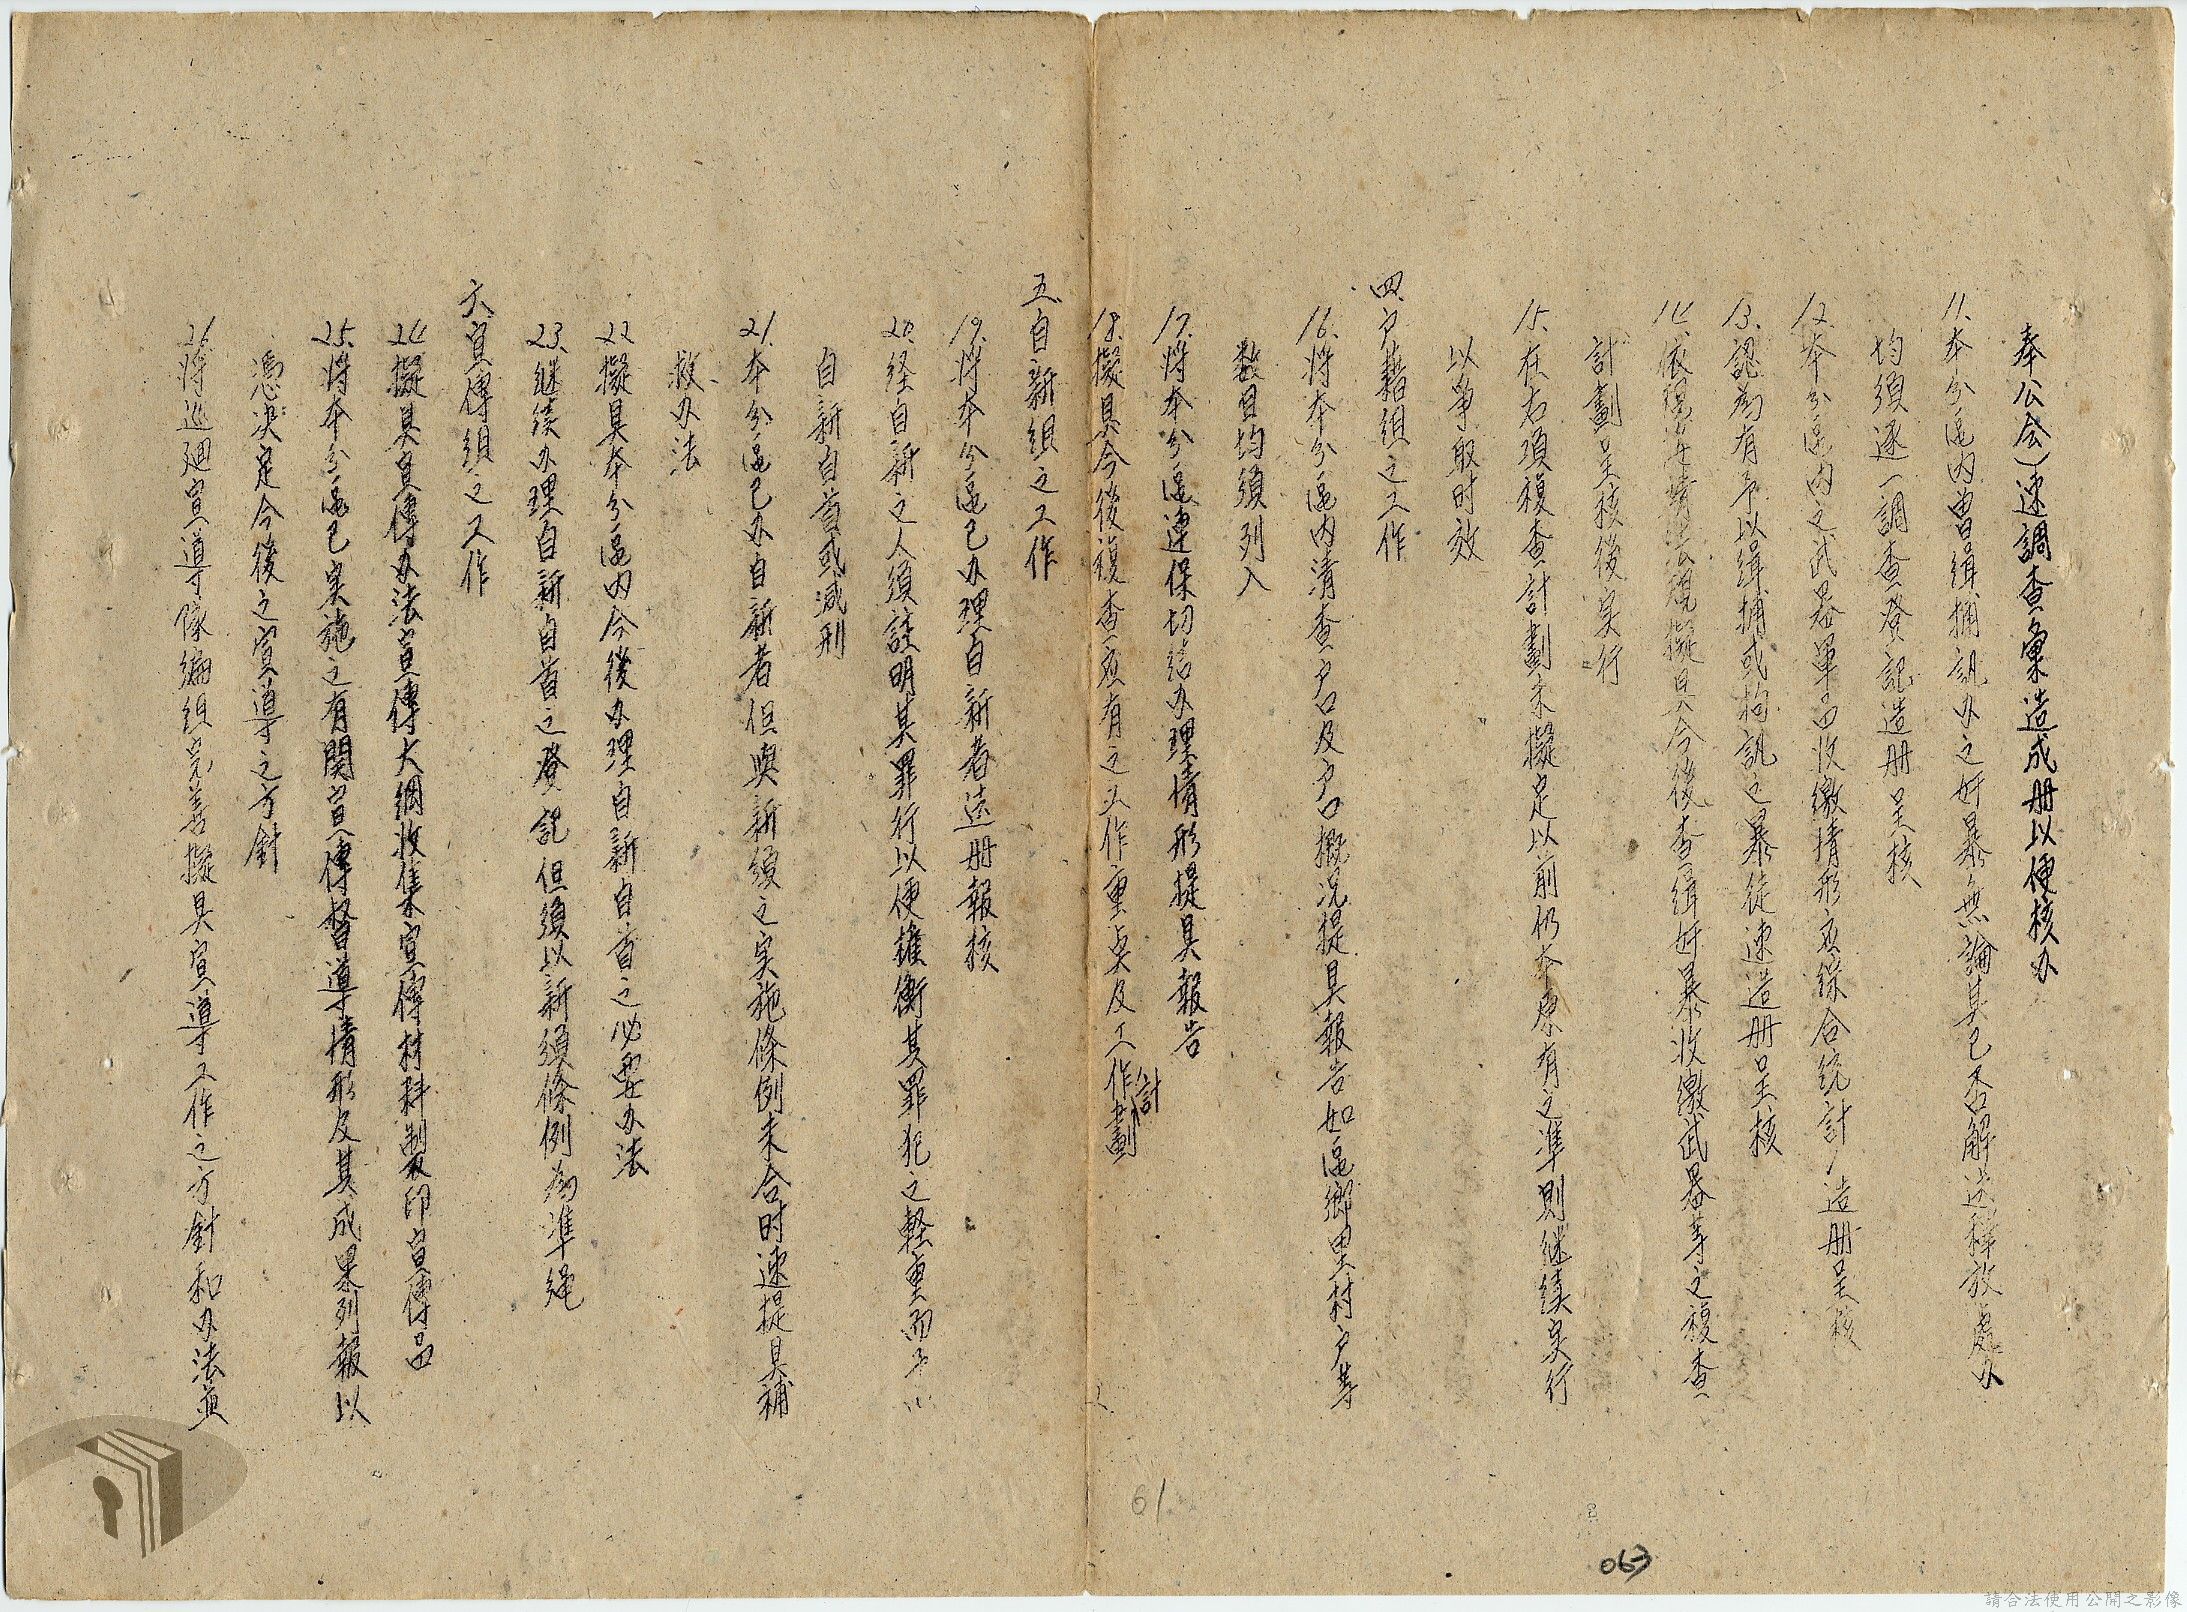 奉公会)速調查彙造成册以便核办
11.本分區内曾缉捕訊办之奸暴無論其已否解送释放處办
均須逐一調查登記造册呈核
12.本分區内之武器軍品收繳情形应綜合統計造册呈核
13.認為有予以缉捕或拘訊之暴徒速造册呈核
14.依現 情 擬具今後查缉奸暴收繳武器等之複查
計劃呈核後実行
15.在右項複查計劃未擬定以前仍本原有之準則继续実行
以爭取时效
四.户藉组之工作
16.将本分區内清查户口及户口概况提具報告如區鄉里村户等
数目均須列入
17.将本分區連保切结办理情形提具報告
18.擬具今後複查应有之工作重点及工作計劃
五.自新组之工作
19.将本分區已办理自新者造册報核
20.经自新之人須註明其罪行以便權衡其罪犯之軽重而予以
自新自首或减刑
21.本分區已办自新者但與新須之実施條例未合时速提具補
救办法
22.擬具本分區内今後办理自新自首之必要办法
23.继续办理自新自首之登記但須以新須條例為準绳
六.宣傳组之工作
24.擬具宣傳办法宣傳大綱收集宣傳材料製印宣傳品
25.将本分區已実施之有関宣傳督導情形及其成果列報以
憑决定今後之宣導之方針
26.将巡廻宣導隊编组完善擬具宣導工作之方針和办法並
61
063
請合法使用公開之影像